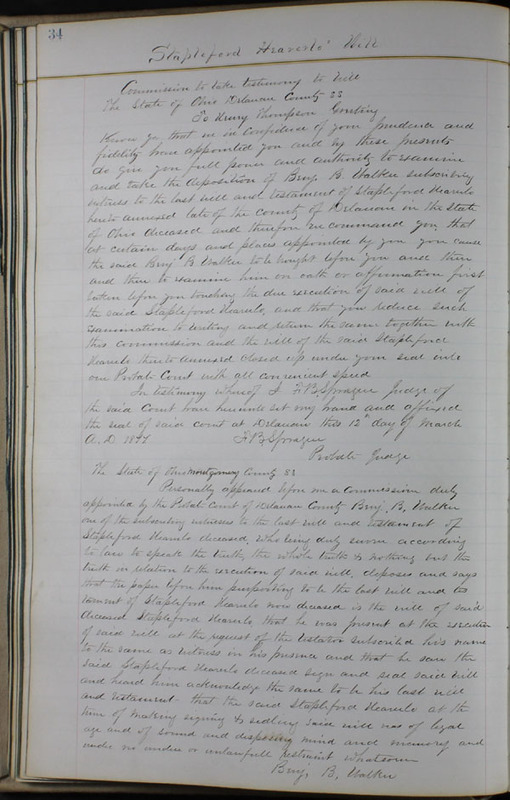 34
Stapleford Hearels' Will
Commission to take testimony to will
The State of Ohio Delaware County SS
To Henry Thompson Greeting
Know ye that we in Confidence of your prudence and
fidelity have appointed you and by these presents
do give you full power and authority to examine
and take the deposition of Benj. B. Walker subscribing
witness to the last will and testament of Stapleford
hereto annexed late of the County of Delaware in the State
of Ohio deceased and therefore we command you, that
at certain days and places appointed by you you cause
the said Benj. B Walker to be brought before you and then
and there to examine him on oath or affirmation first
taken before you touching the due execution of said will of
the said Stapleford and that you reduce such
examination to writing and return the same together with
this commission and the will of the said Stapleford
thereto annexed closed up under your seal into
our Probate Court with all convenient speed
In testimony whereof I F B Sprague Judge of
the said Court have hereunto set my hand and affixed
the seal of said court at Delaware this 12" day of March
A. D. 1877 F B Sprague
Probate Judge
The State of Ohio Montgomery County SS
Personally appeared before me a Commissioner duly
appointed by the Probate Court of Delaware County Benj. B. Walker
one of the subscribing witnesses to the last will and testament of
Stapleford deceased, who being duly sworn according
to law to speak the truth, the whole truth & nothing but the
truth in relation to the execution of said will, deposes and says
that the paper before him purporting to be the last will and tes
tament of Stapleford now deceased is the will of said
deceased Stapleford that he was present at the execution
of said will at the request of the testator subscribed his name
to the same as witness in his presence and that he saw the
said Stapleford deceased sign and seal said will
and heard him acknowledge the same to be his last will
and testament that the said Stapleford at the
time of making signing & sealing said will was of legal
age and of sound and disposing mind and memory and
under no undue or unlawfull restraint whatsoever
Benj. B. Walker